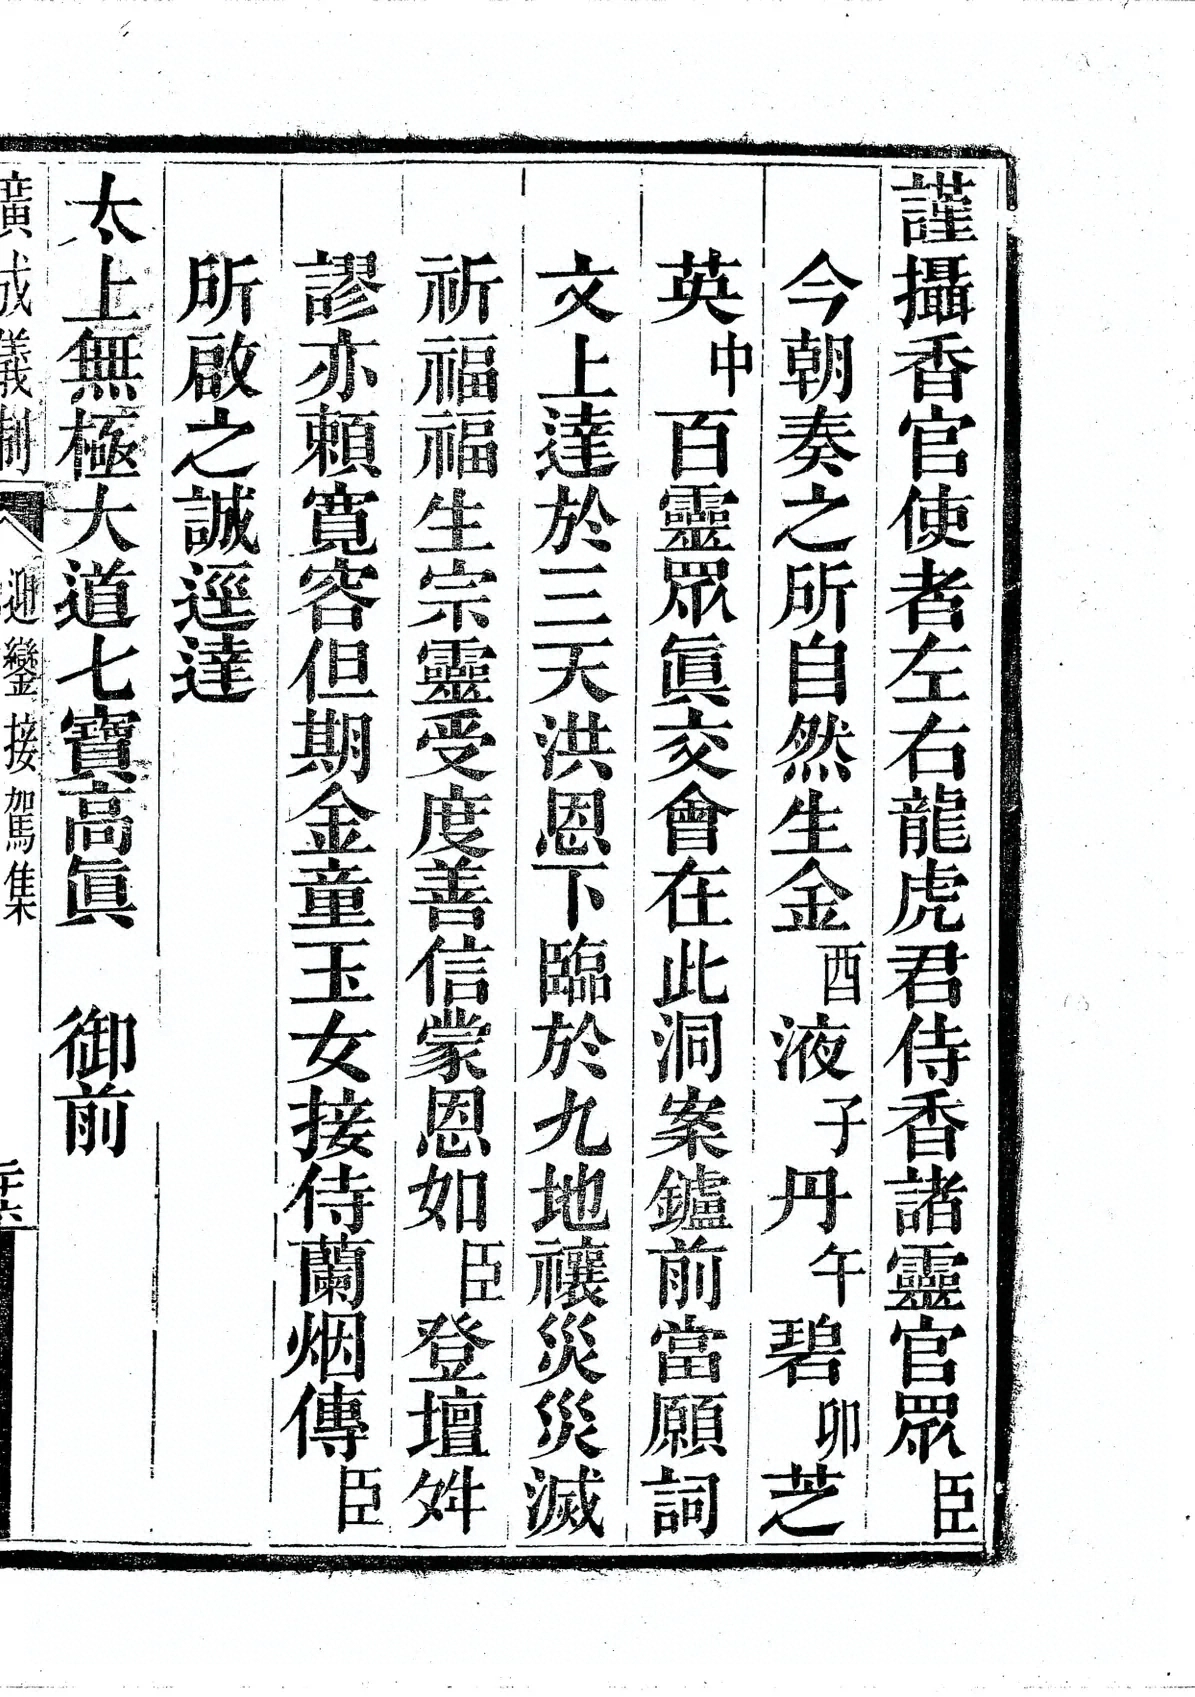 謹攝香官使者左右龍虎君侍香諸靈官眾臣
今朝奏之所自然生金酉液子丹午碧卯芝
英中百靈眾眞交會在此洞案鑪前當願詞
文上達於三天洪恩下臨於九地禳災災滅
祈福福生宗靈受度善信蒙恩如臣登壇舛
謬亦賴寬容但期金童玉女接侍蘭烟傳臣
所啟之誠逕達
太上無極大道七寶高眞　御前
廣成儀制　迎鑾接駕集　二十六